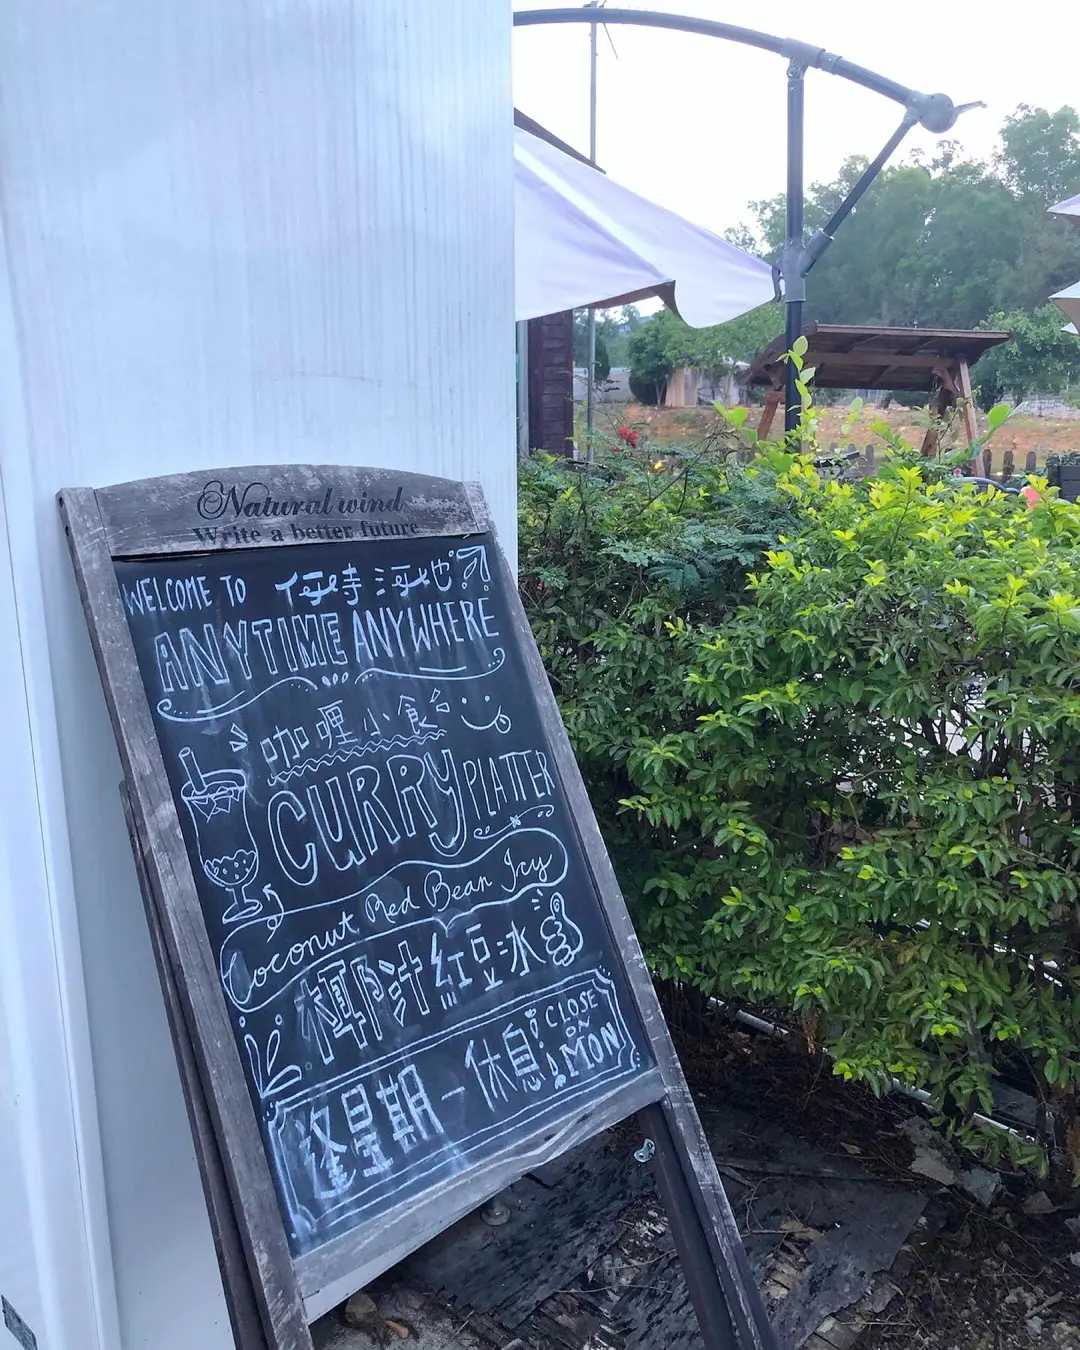 Natural wind
Write a better future
WELCOME TO 何時何地
ANYTIME ANYWHERE
咖喱小食
CURRY PLATTER
Coconut Red Bean Icy
椰汁紅豆冰
逢星期一休息!
CLOSE
ON
MON